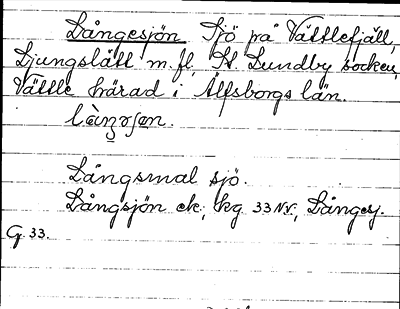 Långesjön Sjö på Vättlefjäll,
Ljungslätt m. fl. St. Lundby socken,
Vättle härad i Älfsborgs län.
Långsmal sjö.
Långsjön ek., kg 33 NV., Långej.
G 33.